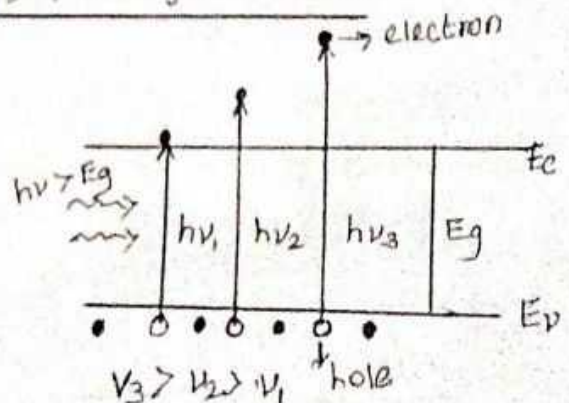 → electron
Ec
hν > Eg
hν₁ hν₂ hν₃ Eg
Eν
ν₃ > ν₂ > ν₁ hole